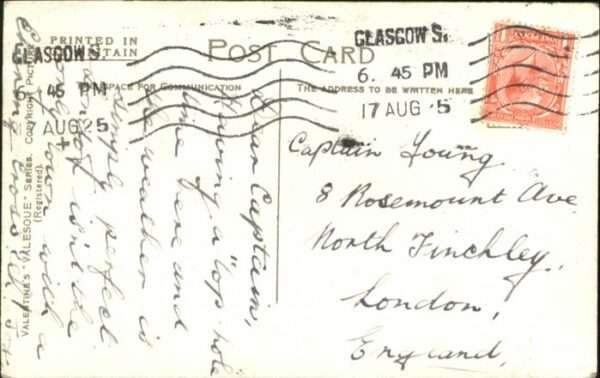 PRINTED IN
BRITAIN
POST CARD
SPACE FOR COMMUNICATION
THE ADDRESS TO BE WRITTEN HERE
GLASGOW S.
6. 45 PM
17 AUG 25
GLASGOW S.
6. 45 PM
17 AUG 5
VALENTINE'S "VALESQUE" Series. COPYRIGHT PICTURE
(Registered).
Dear Captain,
Having a "top hole
time here and
the weather is
simply perfect
isn't the
town with a
Captain Young
8 Rosemount Ave
North Finchley,
London,
England,